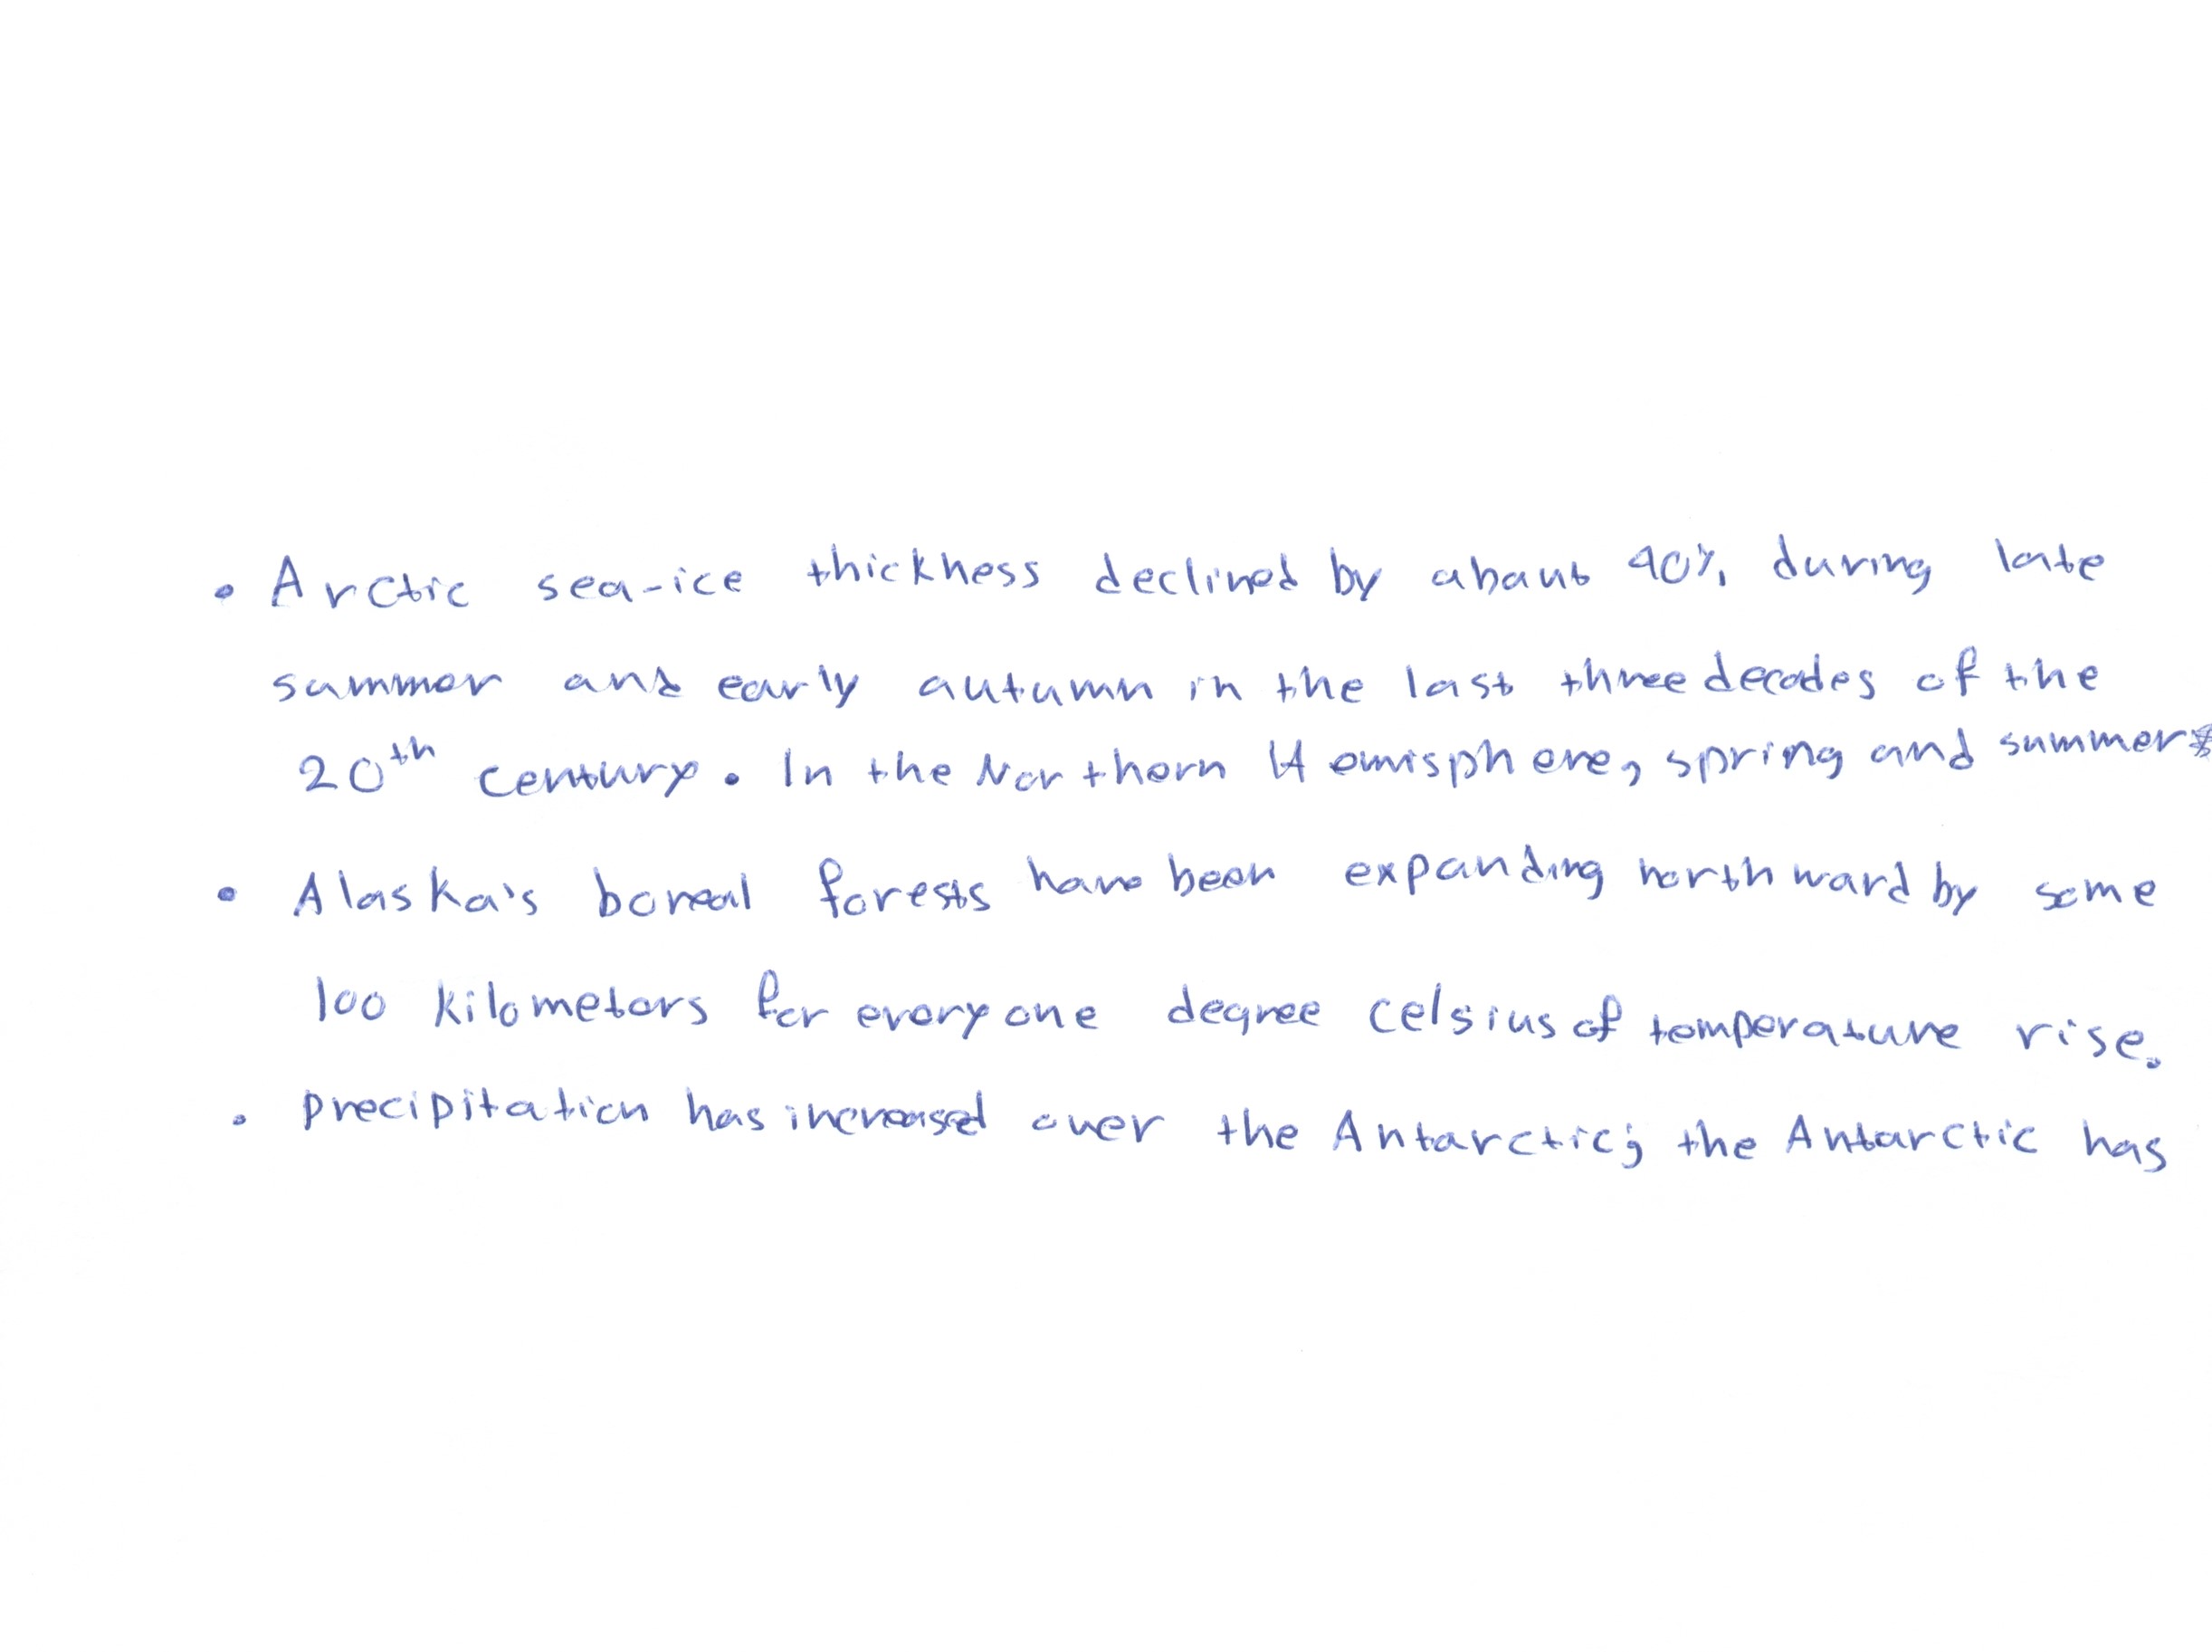 • Arctic sea-ice thickness declined by about 40% during late
summer and early autumn in the last three decades of the
20th century. In the Northern Hemisphere, spring and summer
• Alaska's boreal forests have been expanding northward by some
100 kilometers for every one degree celsius of temperature rise.
• precipitation has increased over the Antarctic; the Antarctic has